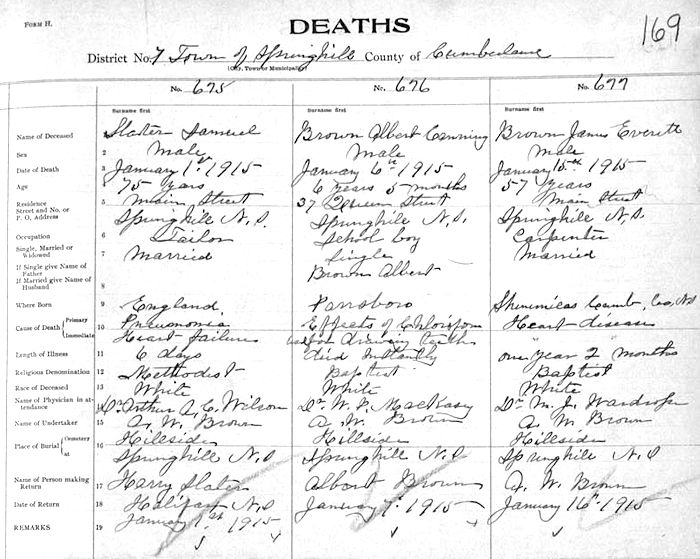 FORM H.
169
DEATHS
District No. 7 Town of Springhill County of Cumberland
(City, Town or Municipality)
No. 675 No. 676 No. 677
Surname first Surname first Surname first
Name of Deceased 1 Slater Samuel Brown Albert Canning Brown James Everett
Sex 2 Male Male Male
Date of Death 3 January 1st 1915 January 6th 1915 January 15th 1915
Age 4 75 years 6 years 5 months 57 years
Residence Street and No. or P. O. Address 5 Main Street 37 Queen Street Main Street
Springhill N.S. Springhill N.S. Springhill N.S.
Occupation 6 Tailor School boy Carpenter
Single, Married or Widowed 7 Married Single Married
If Single give Name of Father
If Married give Name of Husband 8 Brown Albert
Where Born 9 England Parrsboro Shinimicas Cumb. Co. N.S
Cause of Death Primary 10 Pneumonia Effects of Chloroform Heart disease
Immediate Heart failure drawing teeth
Length of Illness 11 6 days died instantly one year 2 months
Religious Denomination 12 Methodist Baptist Baptist
Race of Deceased 13 White White White
Name of Physician in attendance 14 Dr Arthur Wilson Dr W. MacKasy Dr M. J. Wardrope
Name of Undertaker 15 A. W. Brown A. W. Brown A. W. Brown
Place of Burial Cemetery at 16 Hillside Hillside Hillside
Springhill N.S Springhill N.S Springhill N.S
Name of Person making Return 17 Harry Slater Albert Brown A. W. Brown
Date of Return 18 Halifax N.S January 7th 1915 January 16th 1915
REMARKS 19 January 1st 1915